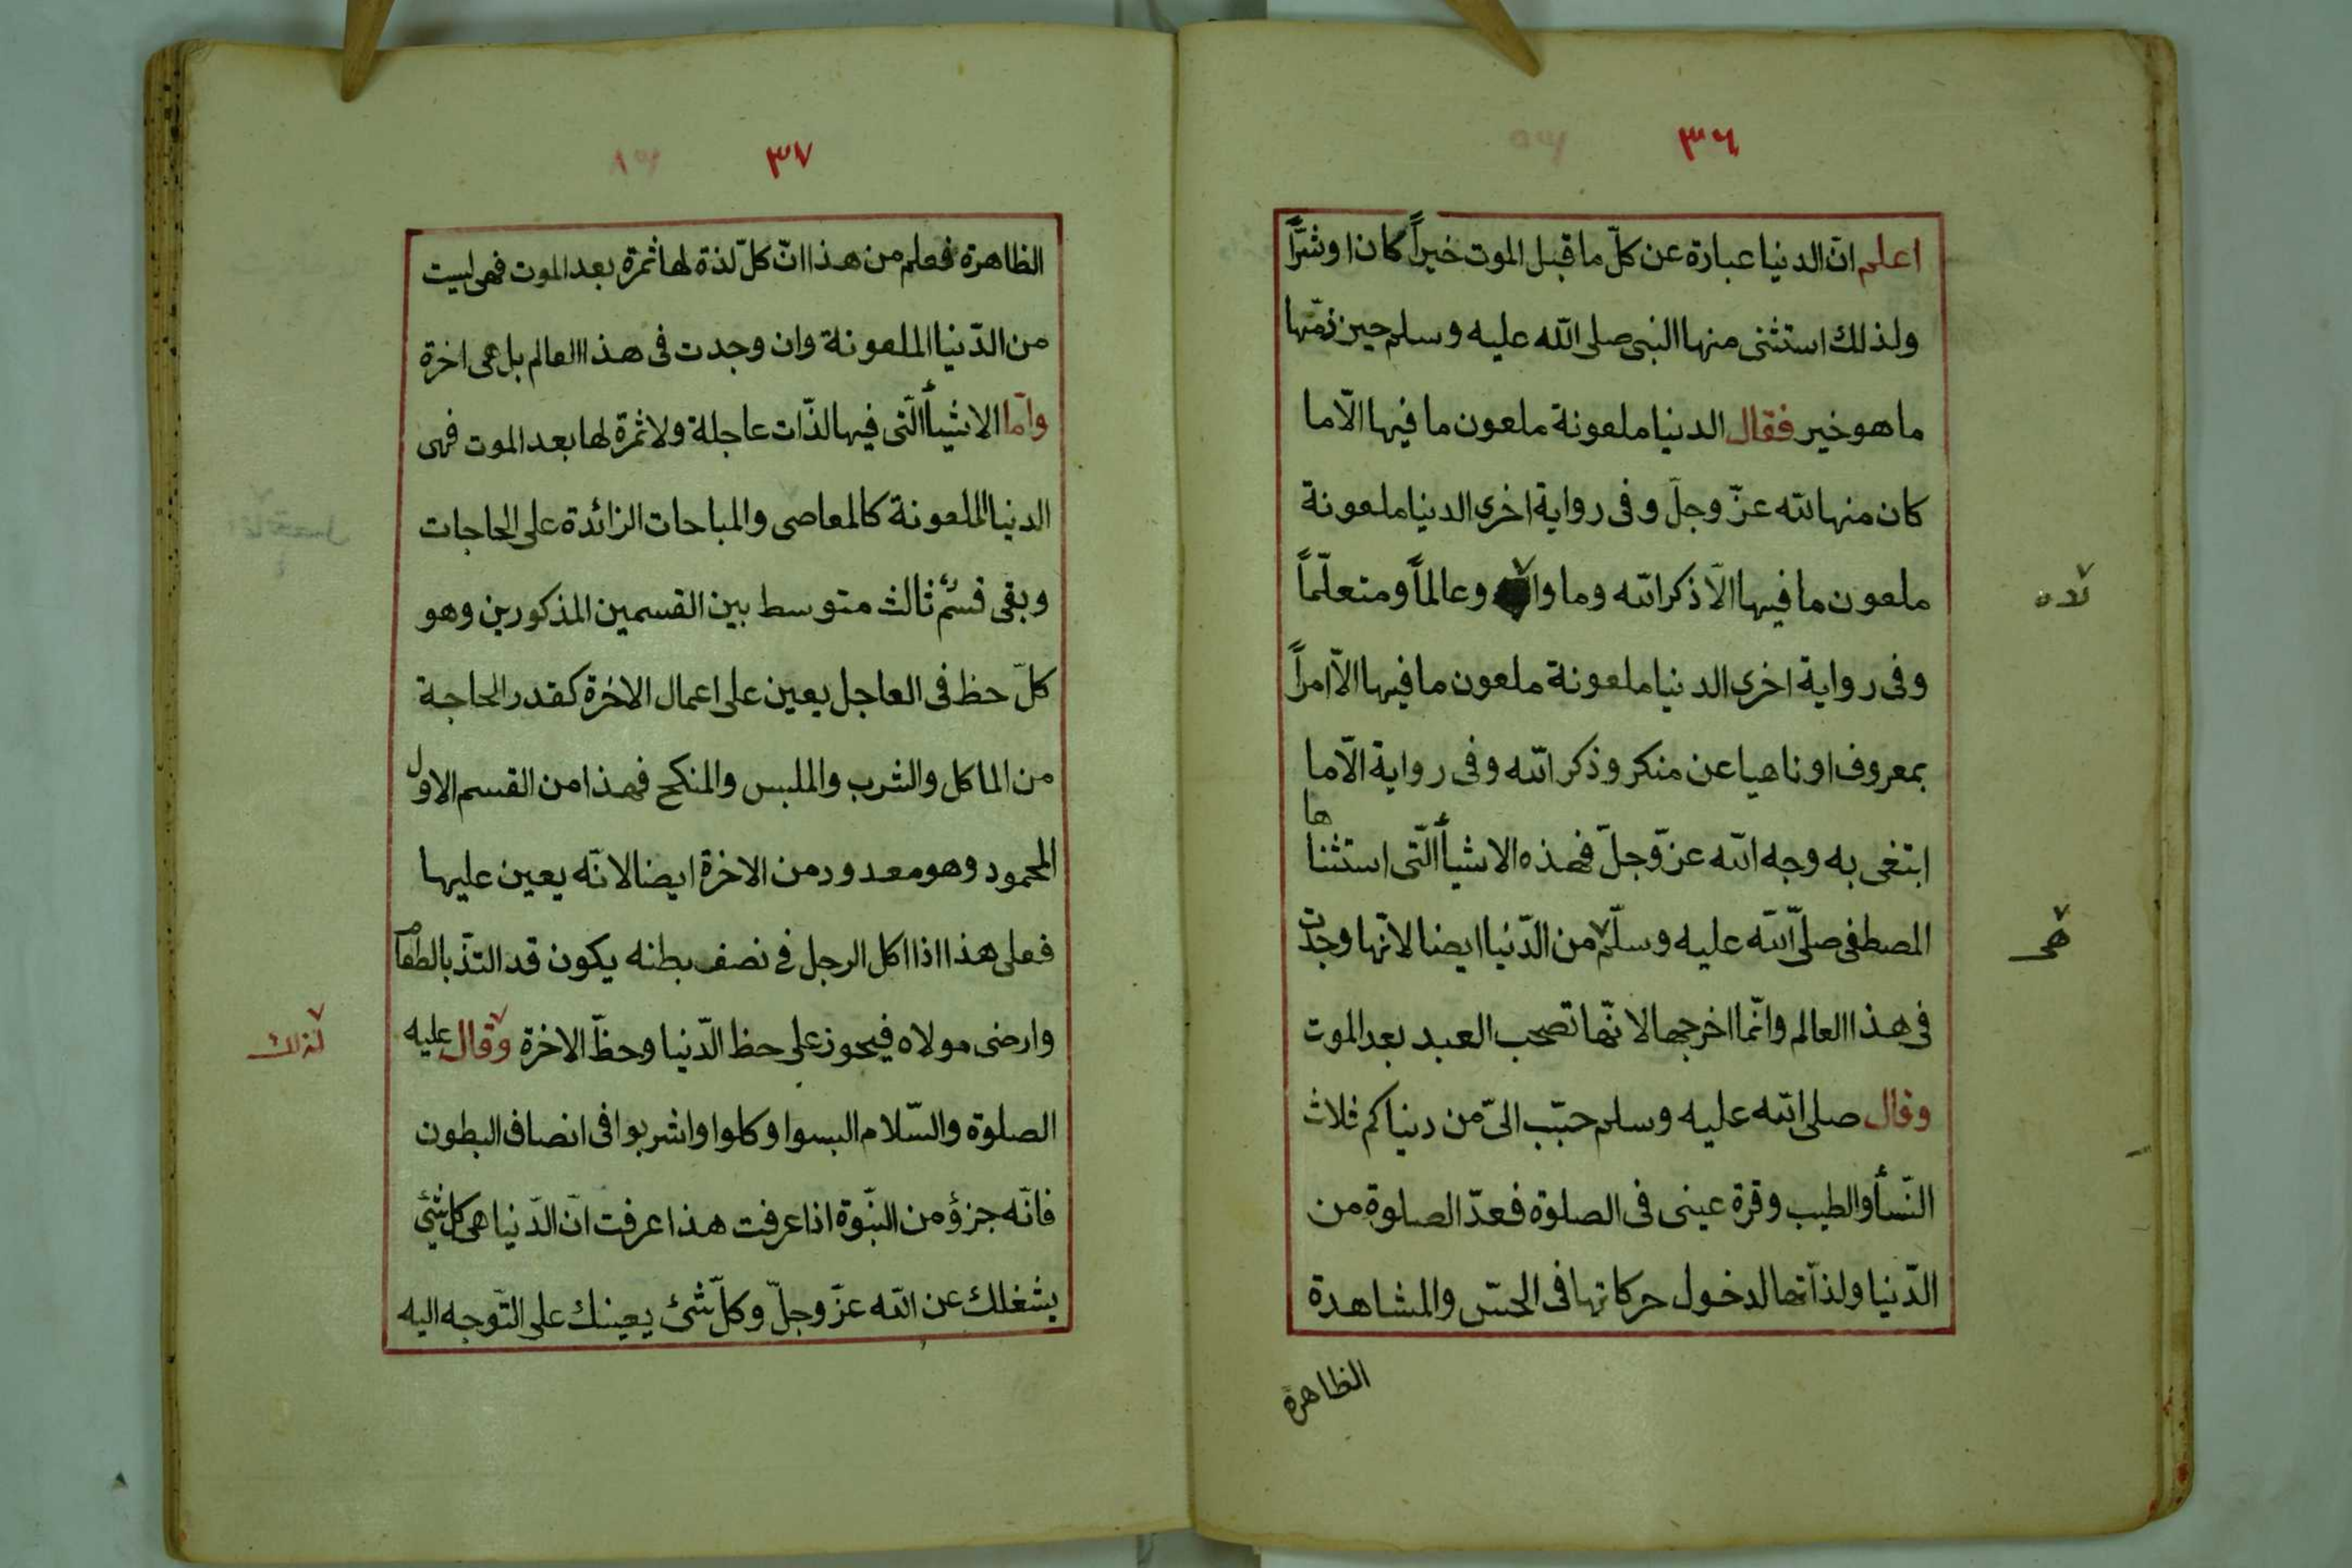 ٣٦
اعلم انّ الدنيا عبارة عن كلّ ما قبل الموت خيراً كان او شرّاً
ولذلك استثنى منها النبى صلى الله عليه وسلم حين ذمّها
ما هو خير فقال الدنيا ملعونة ملعون ما فيها الّا ما
كان منها لله عزّ وجلّ وفى رواية اخرى الدنيا ملعونة
ملعون ما فيها الّا ذكر الله وما وا وعالماً ومتعلّماً
لاه
وفى رواية اخرى الدنيا ملعونة ملعون ما فيها الّا امراً
بمعروف او ناهيا عن منكر وذكر الله وفى رواية الّا ما
ابتغى به وجه الله عزّ وجلّ فهذه الاشيأ الّتى استثناها
المصطفى صلّى الله عليه وسلّم من الدّنيا ايضا لانّها وجدت
هى
فى هذا العالم وانّما اخرجها لانّها تصحب العبد بعد الموت
وقال صلى الله عليه وسلم حبّب الىّ من دنياكم ثلاث
النّسأ والطيب وقرة عينى فى الصلوة فعدّ الصلوة من
الدّنيا ولذآتها لدخول حركاتها فى الحسّ والمشاهدة
الظاهرة
٣٧
الظاهرة فعلم من هذا انّ كلّ لذة لها ثمرة بعد الموت فهى ليست
من الدّنيا الملعونة وان وجدت فى هذا العالم بل هى اخرة
وامّا الاشيأ الّتى فيها لذّات عاجلة ولا ثمرة لها بعد الموت فهى
الدنيا الملعونة كالمعاصى والمباحات الزائدة على الحاجات
وبقى قسم ثالث متوسط بين القسمين المذكورين وهو
كلّ حظ فى العاجل يعين على اعمال الاخرة كقدر الحاجة
من الماكل والشرب والملبس والمنكح فهذا من القسم الاول
المحمود وهو معدود من الاخرة ايضا لانّه يعين عليها
فعلى هذا اذا اكل الرجل فى نصف بطنه يكون قد التذّ بالطعام
وارضى مولاه فيحوز على حظ الدّنيا وحظّ الاخرة وقال عليه
لذلك
الصلوة والسّلام البسوا وكلوا واشربوا فى انصاف البطون
فانّه جزؤ من النبّوة اذا عرفت هذا عرفت انّ الدّنيا هى كل شئ
يشغلك عن الله عزّ وجلّ وكلّ شئ يعينك على التّوجه اليه